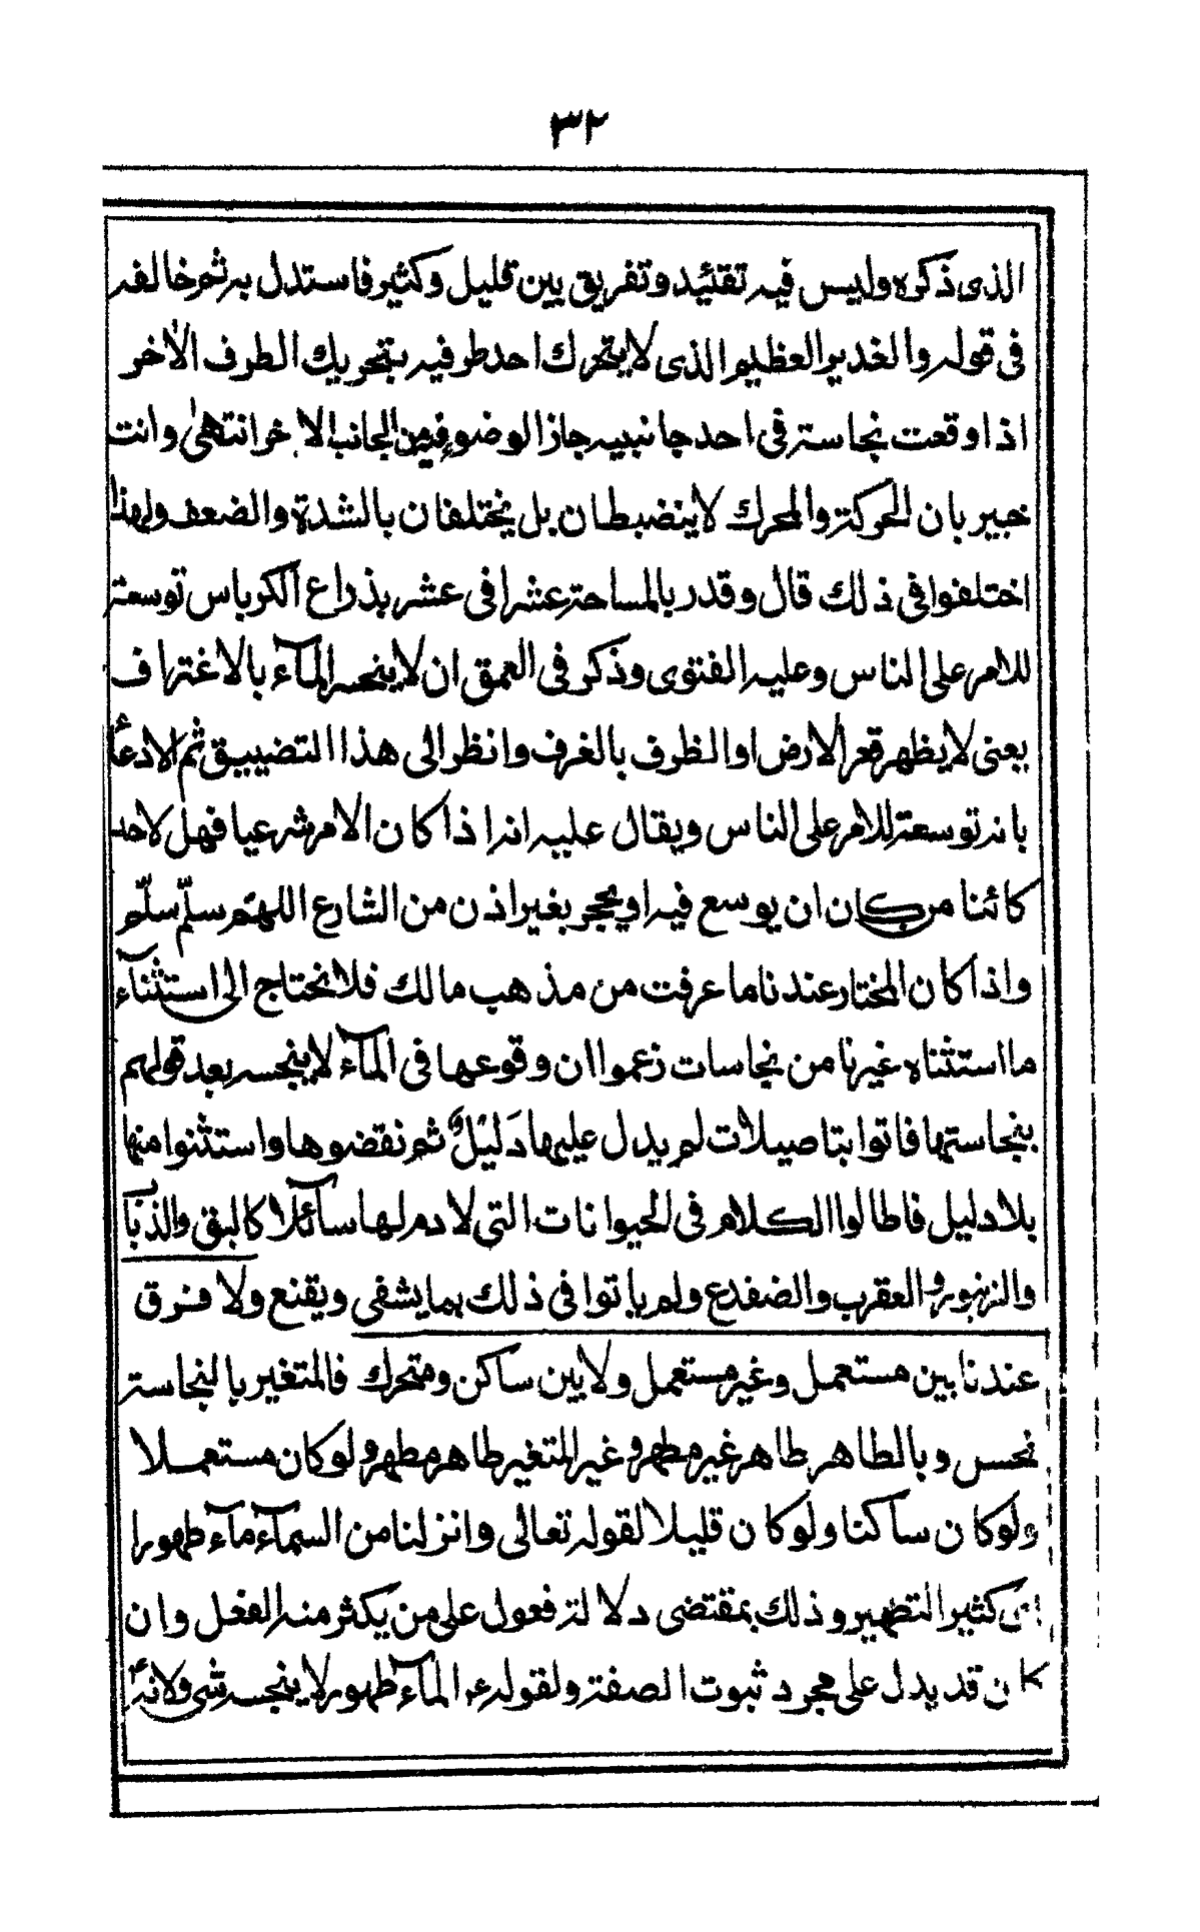 ٣٢
الذی ذکره ولیس فیه تقئید وتفریق بین قلیل وکثیر فاستدل به ثم خالفه
فی قوله والغدیر العظیم الذی لا یتحرک احد طرفیه بتحریک الطرف الاٰخر
اذا وقعت نجاسة فی احد جانبیه جاز الوضوء فیه من الجانب الاٰخر انتهیٰ وانت
خبیر بان الحرکة والمحرک لا ینضبطان بل یختلفان بالشدة والضعف ولهذا
اختلفوا فی ذلک قال وقدر بالمساحة عشرا فی عشر بذراع الکرباس توسعة
للامر علی الناس وعلیه الفتوی وذکر فی العمق ان لا ینحسر المآء بالاغتراف
یعنی لا یظهر قعر الارض او الظرف بالغرف وانظر الی هذا التضییق ثم الادعاً
بانه توسعة للامر علی الناس ویقال علیه انه اذا کان الامر شرعیا فهل لاحد
کائنا من کان ان یوسع فیه او یحجر بغیر اذن من الشارع اللهمّ سلّم سلّم
واذا کان المختار عندنا ما عرفت من مذهب مالک فلا نحتاج الی استثنآء
ما استثناه غیرنا من نجاسات زعموا ان وقوعها فی المآء لا ینجسه بعد قولهم
بنجاستها فاتوا بتاصیلات لم یدل علیها دَلیلٌ ثم نقضوها واستثنوا منها
بلا دلیل فاطالوا الکلام فی الحیوانات التی لا دم لها سآئلا کالبق والذبا
والزنبور والعقرب والضفدع ولم یاتوا فی ذلک بما یشفی ویقنع ولا فرق
عندنا بین مستعمل وغیر مستعمل ولا بین ساکن ومتحرک فالمتغیر بالنجاسة
نجس وبالطاهر طاهر غیر مطهر وغیر المتغیر طاهر مطهر ولو کان مستعملا
ولو کان ساکنا ولو کان قلیلا لقوله تعالی وانزلنا من السمآء مآء طهورا
ای کثیر التطهیر وذلک بمقتضی دلالة فعول علی من یکثر منه الفعل وان
کان قد یدل علی مجرد ثبوت الصفة ولقوله ع المآء طهور لا ینجسه شی ولانه